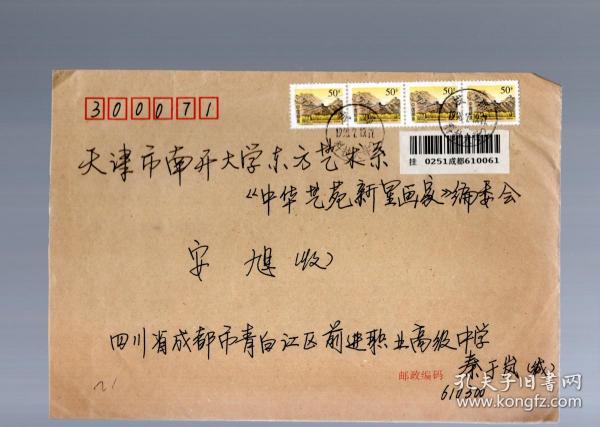 50分 50分 50分 50分
300071
挂 0251成都610061
天津市南开大学东方艺术系
《中华艺苑新星画家》编委会
安旭(收)
四川省成都市青白江区前进职业高级中学
秦于岚(缄)
邮政编码
610300
孔夫子旧书网
www.kongfz.com